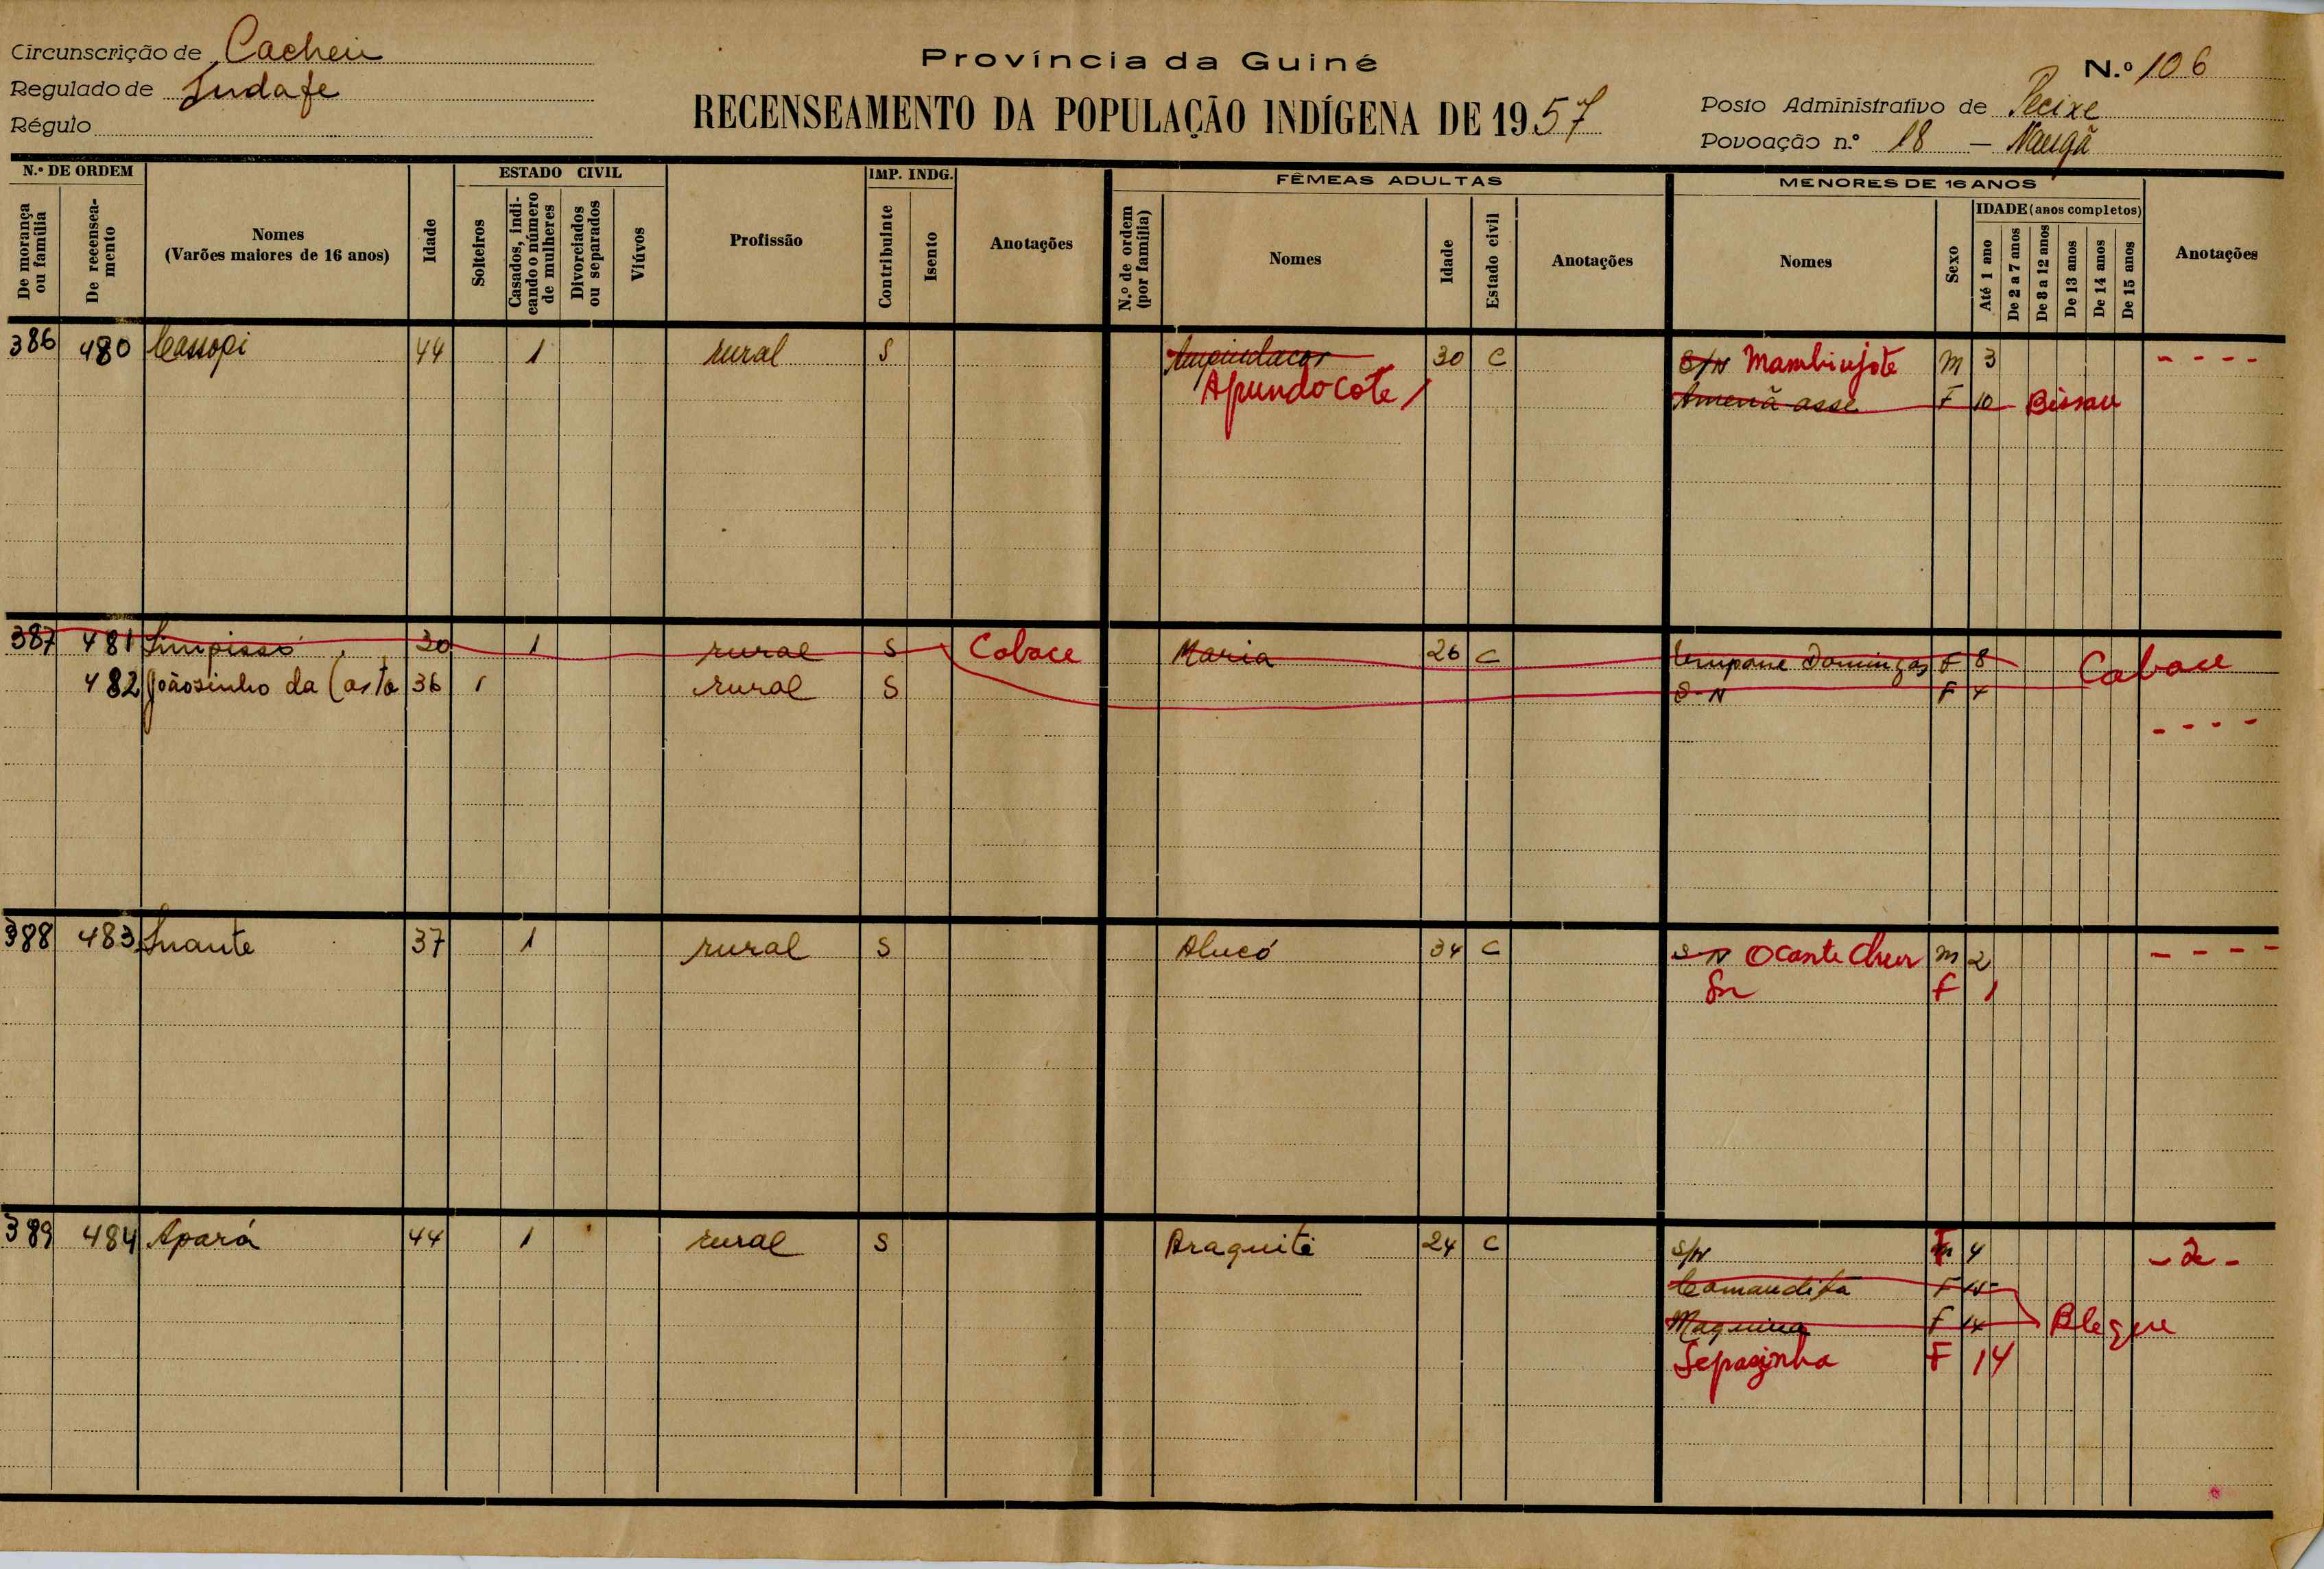 Circunscrição de Cacheu
Regulado de
Régulo
Província da Guiné
RECENSEAMENTO DA POPULAÇÃO INDÍGENA DE 1957
N.º 106
Posto Administrativo de Pecixe
Povoação n.º 18 — Nangã
N.º DE ORDEM
De morança ou família
De recenseamento
Nomes
(Varões maiores de 16 anos)
Idade
ESTADO CIVIL
Solteiros
Casados, indicando o número de mulheres
Divorciados ou separados
Viúvos
Profissão
IMP. INDG.
Contribuinte
Isento
Anotações
FÊMEAS ADULTAS
N.º de ordem (por família)
Nomes
Idade
Estado civil
Anotações
MENORES DE 16 ANOS
Nomes
Sexo
IDADE (anos completos)
Até 1 ano
De 2 a 7 anos
De 8 a 12 anos
De 13 anos
De 14 anos
De 15 anos
Anotações
386 480 Cassopi 44 1 rural S 30 C S/N Mambinjote M 3 - - - -
Apundocote F 10 Bissau
387 481 30 1 rural S Cabace Maria 26 C Domingas F 8 Cabace
482 Joãosinho da Costa 36 1 rural S S-N F 4
- - - -
388 483 37 1 rural S Alucó 34 C S-N Ocante M 2 - - - -
Sn F 1
389 484 Apará 44 1 rural S Araquite 24 C S/N F 4 - 2 -
Comandita F 15
Maquina F 14 Blegue
Sepazinha F 14